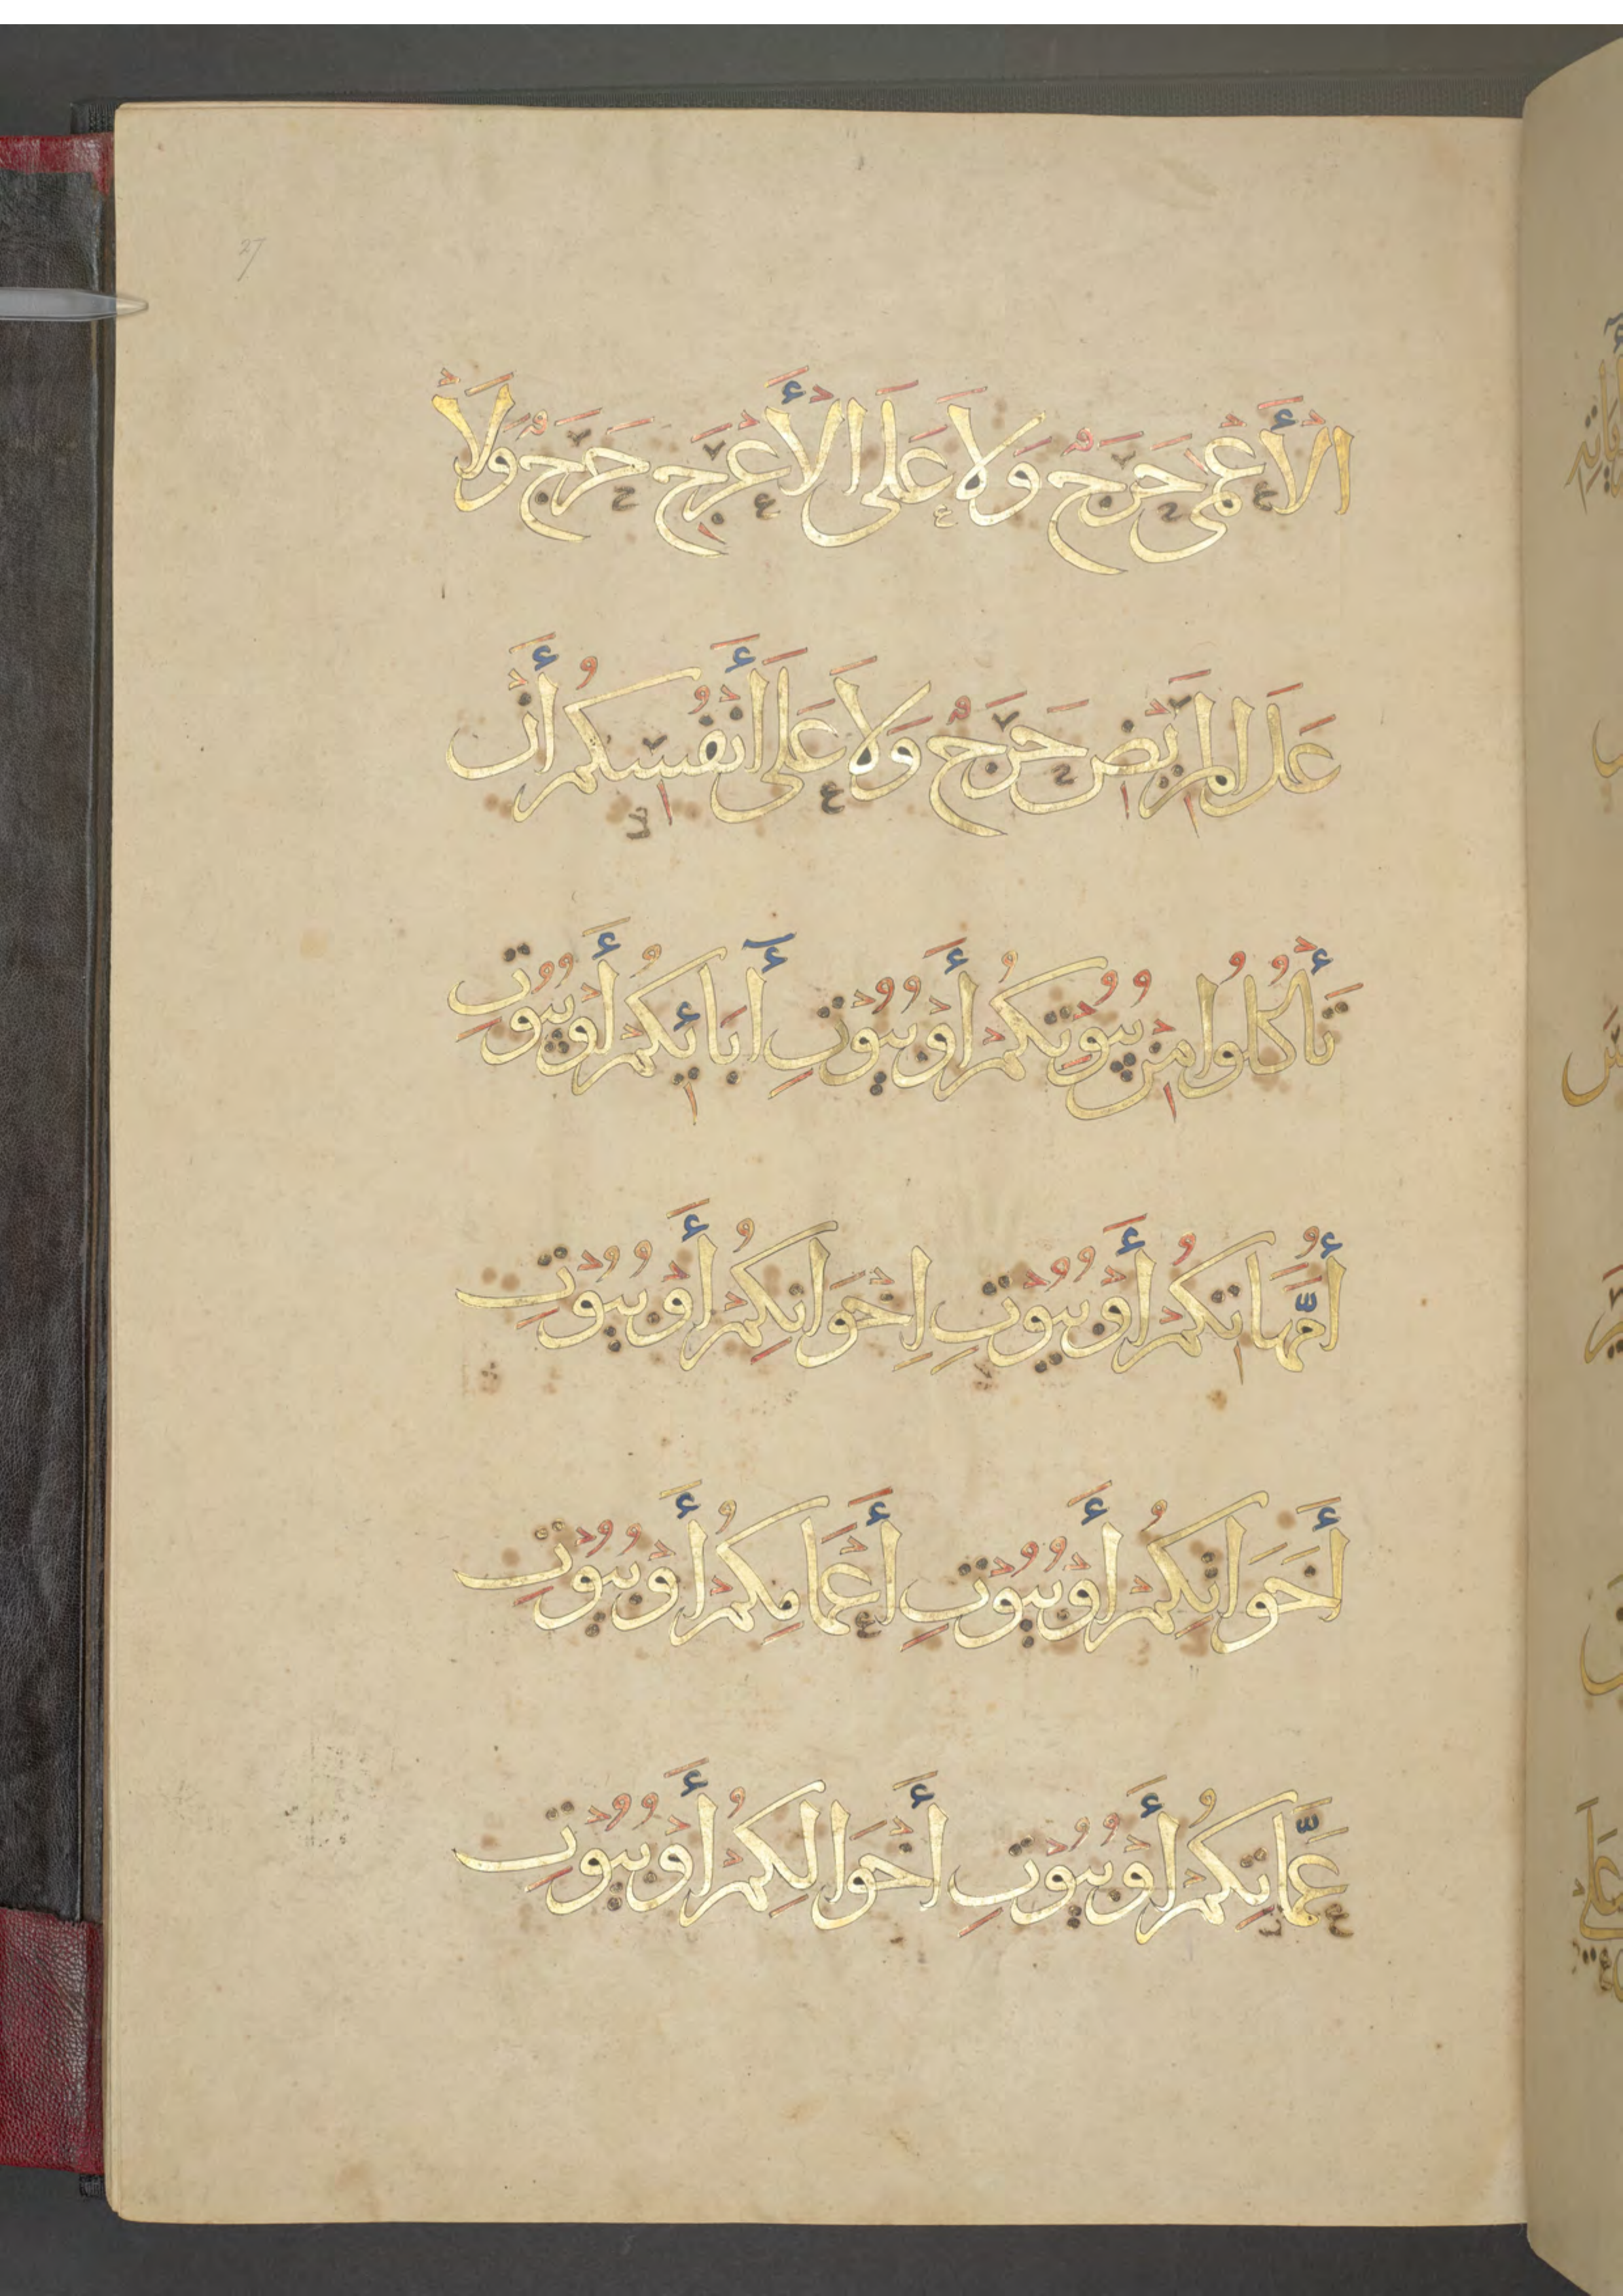 27
الأَعْمَى حَرَجٌ وَلاَ عَلَى الأَعْرَجِ حَرَجٌ وَلاَ
عَلَى المَرِيْضِ حَرَجٌ وَلاَ عَلَى أَنْفُسِكُمْ أَنْ
تَأْكُلُوا مِنْ بُيُوْتِكُمْ أَوْ بُيُوْتِ أَبَائِكُمْ أَوْ بُيُوْتِ
أُمَّهَاتِكُمْ أَوْ بُيُوْتِ إِخْوَانِكُمْ أَوْ بُيُوْتِ
أَخَوَاتِكُمْ أَوْ بُيُوْتِ أَعْمَامِكُمْ أَوْ بُيُوْتِ
عَمَّاتِكُمْ أَوْ بُيُوْتِ أَخْوَالِكُمْ أَوْ بُيُوْتِ